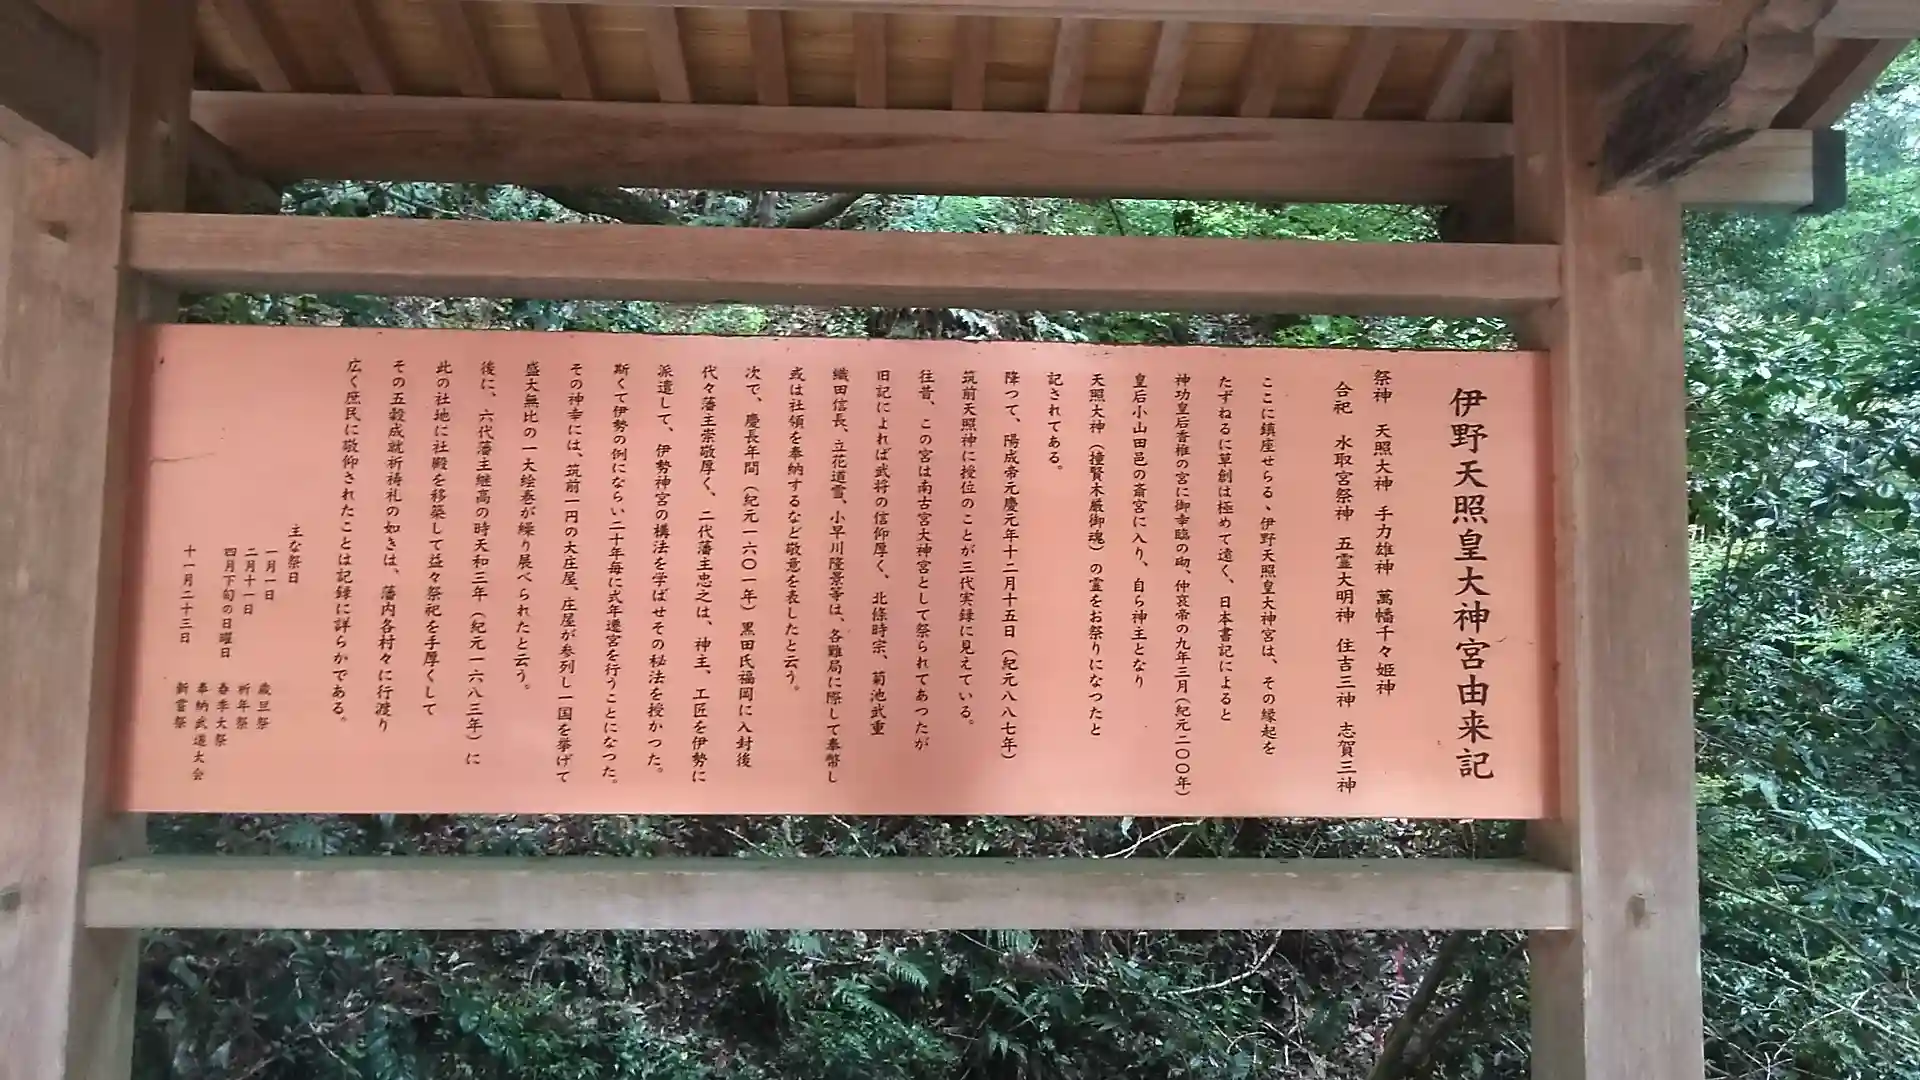 伊野天照皇大神宮由来記
祭神　天照大神　手力雄神　萬幡千々姫神
合祀　水取宮祭神　五霊大明神　住吉三神　志賀三神
ここに鎮座せらる、伊野天照皇大神宮は、その縁起を
たずねるに草創は極めて遠く、日本書記によると
神功皇后香椎の宮に御幸臨の砌、仲哀帝の九年三月（紀元二〇〇年）
皇后小山田邑の斎宮に入り、自ら神主となり
天照大神（撞賢木厳御魂）の霊をお祭りになつたと
記されてある。
降つて、陽成帝元慶元年十二月十五日（紀元八八七年）
筑前天照神に授位のことが三代実録に見えている。
往昔、この宮は南古宮大神宮として祭られてあつたが
旧記によれば武将の信仰厚く、北條時宗、菊池武重
織田信長、立花道雪、小早川隆景等は、各難局に際して奉幣し
或は社領を奉納するなど敬意を表したと云う。
次で、慶長年間（紀元一六〇一年）黒田氏福岡に入封後
代々藩主崇敬厚く、二代藩主忠之は、神主、工匠を伊勢に
派遣して、伊勢神宮の構法を学ばせその秘法を授かつた。
斯くて伊勢の例にならい二十年毎に式年遷宮を行うことになつた。
その神幸には、筑前一円の大庄屋、庄屋が参列し一国を挙げて
盛大無比の一大絵巻が繰り展べられたと云う。
後に、六代藩主継高の時天和三年（紀元一六八三年）に
此の社地に社殿を移築して益々祭祀を手厚くして
その五穀成就祈祷札の如きは、藩内各村々に行渡り
広く庶民に敬仰されたことは記録に詳らかである。
主な祭日
一月一日　歳旦祭
二月十一日　祈年祭
四月下旬の日曜日　春季大祭
奉納武道大会
十一月二十三日　新嘗祭